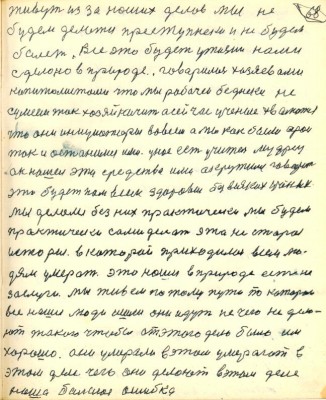 68
живут из за наших делов мы не
будем делати преступнеям и не будем
болеть, Все это будет у жизни нами
сделоно в природе. говарили хозяевами
капитолистами што мы рабочее бедняки не
сумеем так хозяйничить а сейчас ученые хвалютса
что они инициаторы во всем а мы как были
так и остались ими. у нас есть учитель мудрец
он нашел эти средства
это будет нам всем здоровье без всяких
мы делали без них практически мы будем
практически сами делать эта не старая
история. в каторай приходился всем лю-
дям умерать это наши в природе есть на
заслуги. мы живем по тому пути по котором
все наши люди ишли они идут не чего не дела-
ют такого чтобы от этого дело было им
хорошо. они умерали в этом умерают в
этом деле чего они делоют в этом деле
наша большая ошибка